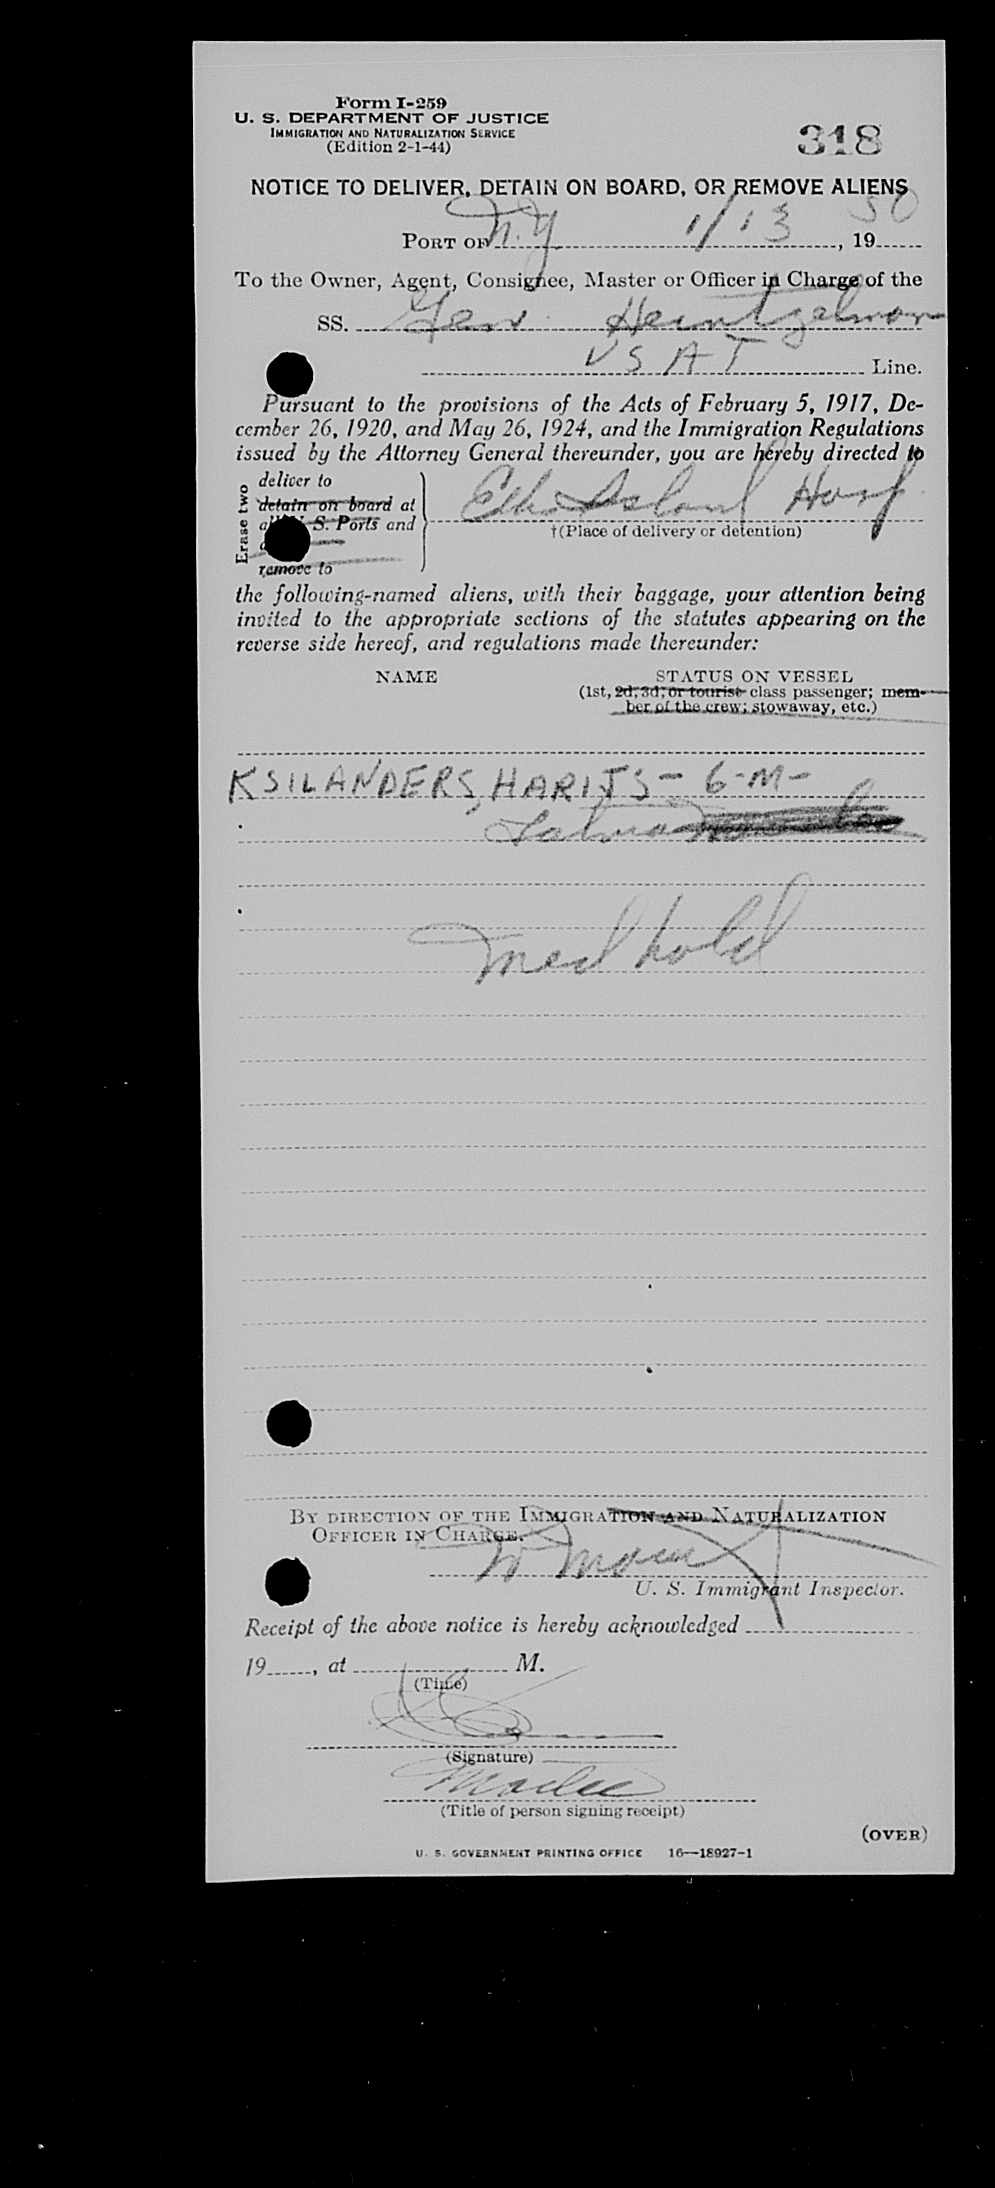 Form I-259
U. S. DEPARTMENT OF JUSTICE
IMMIGRATION AND NATURALIZATION SERVICE
(Edition 2-1-44)
318
NOTICE TO DELIVER, DETAIN ON BOARD, OR REMOVE ALIENS
PORT OF N.Y 1/13, 19 50
To the Owner, Agent, Consignee, Master or Officer in Charge of the
SS. Gen. Heintzelman
USAT Line.
Pursuant to the provisions of the Acts of February 5, 1917, De-
cember 26, 1920, and May 26, 1924, and the Immigration Regulations
issued by the Attorney General thereunder, you are hereby directed to
Erase two
deliver to
detain on board at
all U. S. Ports and
remove to
Ellis Island Hosp
†(Place of delivery or detention)
the following-named aliens, with their baggage, your attention being
invited to the appropriate sections of the statutes appearing on the
reverse side hereof, and regulations made thereunder:
NAME STATUS ON VESSEL
(1st, 2d, 3d, or tourist class passenger; mem-
ber of the crew; stowaway, etc.)
KSILANDERS, HARIJS - 6-M-
Med hold
BY DIRECTION OF THE IMMIGRATION AND NATURALIZATION
OFFICER IN CHARGE.
U. S. Immigrant Inspector.
Receipt of the above notice is hereby acknowledged
19, at M.
(Time)
(Signature)
(Title of person signing receipt)
(OVER)
U. S. GOVERNMENT PRINTING OFFICE 16—18927-1